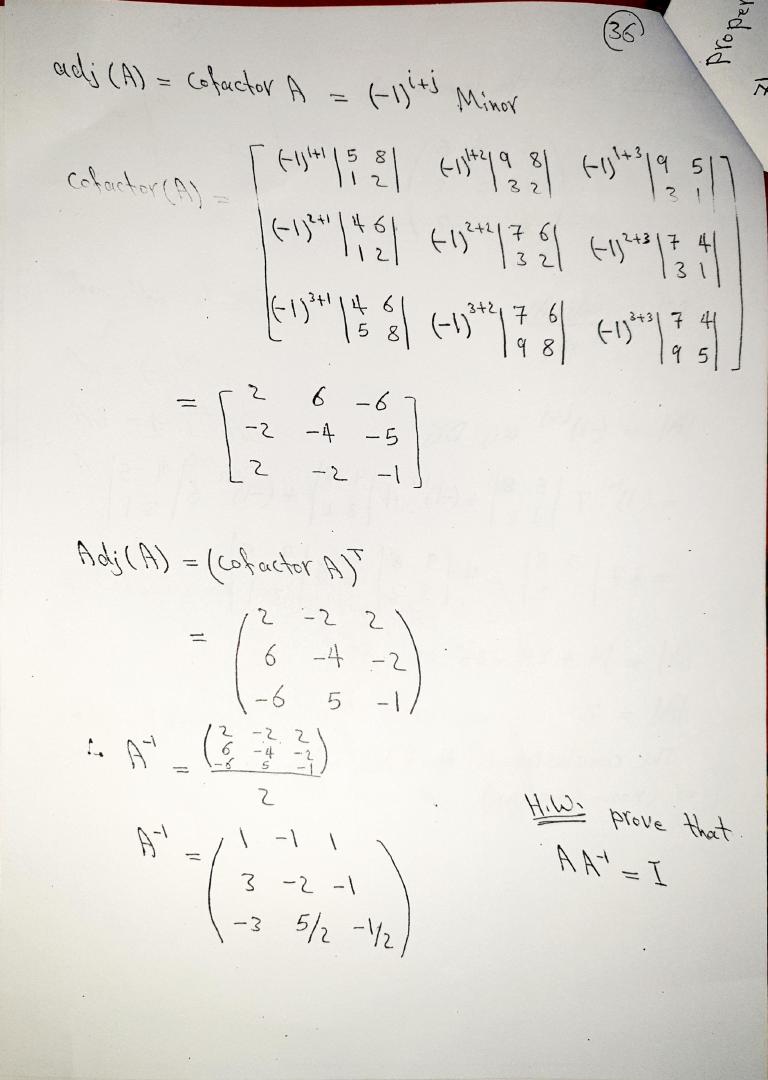 36
proper
adj(A) = Cofactor A = (-1)^{i+j} Minor
Cofactor(A) = [ (-1)^{1+1} |5 8; 1 2| (-1)^{1+2} |9 8; 3 2| (-1)^{1+3} |9 5; 3 1|
(-1)^{2+1} |4 6; 1 2| (-1)^{2+2} |7 6; 3 2| (-1)^{2+3} |7 4; 3 1|
(-1)^{3+1} |4 6; 5 8| (-1)^{3+2} |7 6; 9 8| (-1)^{3+3} |7 4; 9 5| ]
= [ 2 6 -6
-2 -4 -5
2 -2 -1 ]
Adj(A) = (Cofactor A)^T
= ( 2 -2 2
6 -4 -2
-6 5 -1 )
∴ A^{-1} = ( 2 -2 2
6 -4 -2
-6 5 -1 )
2
A^{-1} = ( 1 -1 1
3 -2 -1
-3 5/2 -1/2 )
H.W: prove that
A A^{-1} = I